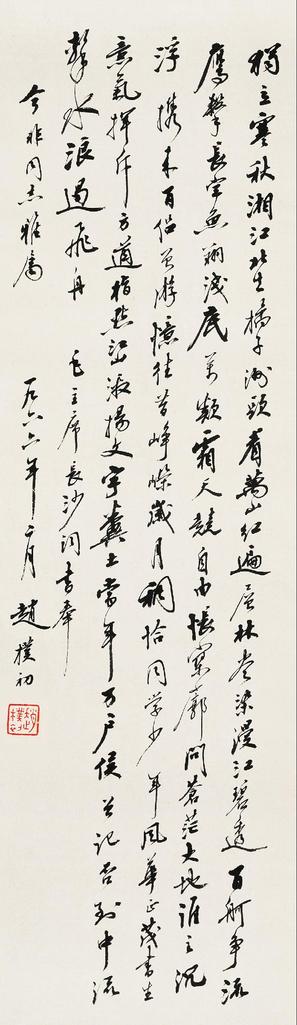 獨立寒秋湘江北去橘子洲頭看萬山紅遍層林盡染漫江碧透百舸争流
鷹擊長空魚翔淺底萬類霜天競自由悵寥廓問蒼茫大地誰主沉
浮攜來百侣曾游憶往昔崢嶸歲月稠恰同學少年風華正茂書生
意氣揮斥方遒指點江山激揚文字糞土當年万户侯曾記否到中流
擊水浪遏飛舟
毛主席長沙詞書奉
今非同志雅屬
一九六六年二月 趙樸初
趙樸初